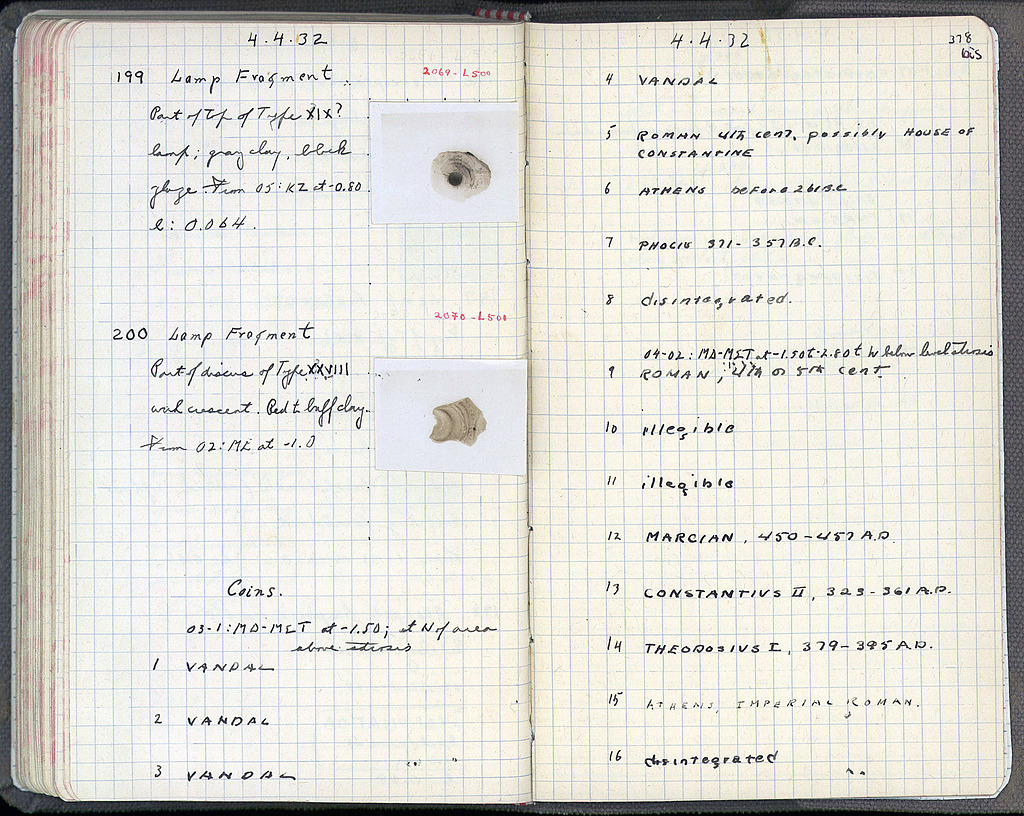 4.4.32
199 Lamp Fragment.
2069-L500
Part of top of Type XIX?
lamp; gray clay, black
glaze. From 05:KZ at -0.80
l: 0.064.
2070-L501
200 Lamp Fragment
Part of discus of Type XXVIII
with crescent. Red to buff clay.
From 02:ME at -1.0
Coins.
03-1:MD-MΣT at -1.50; at N of area
above
1 VANDAL
2 VANDAL
3 VANDAL
4.4.32
378
bis
4 VANDAL
5 ROMAN 4th cent, possibly HOUSE OF
CONSTANTINE
6 ATHENS before 261 B.C
7 PHOCIS 371-357 B.C.
8 disintegrated.
04-02: MD-MΣT at -1.50 to -2.80 below
9 ROMAN, 4th or 5th cent.
10 illegible
11 illegible
12 MARCIAN, 450-457 A.D.
13 CONSTANTIUS II, 323-361 A.D.
14 THEODOSIUS I, 379-395 A.D.
15 ATHENS, IMPERIAL ROMAN.
16 disintegrated